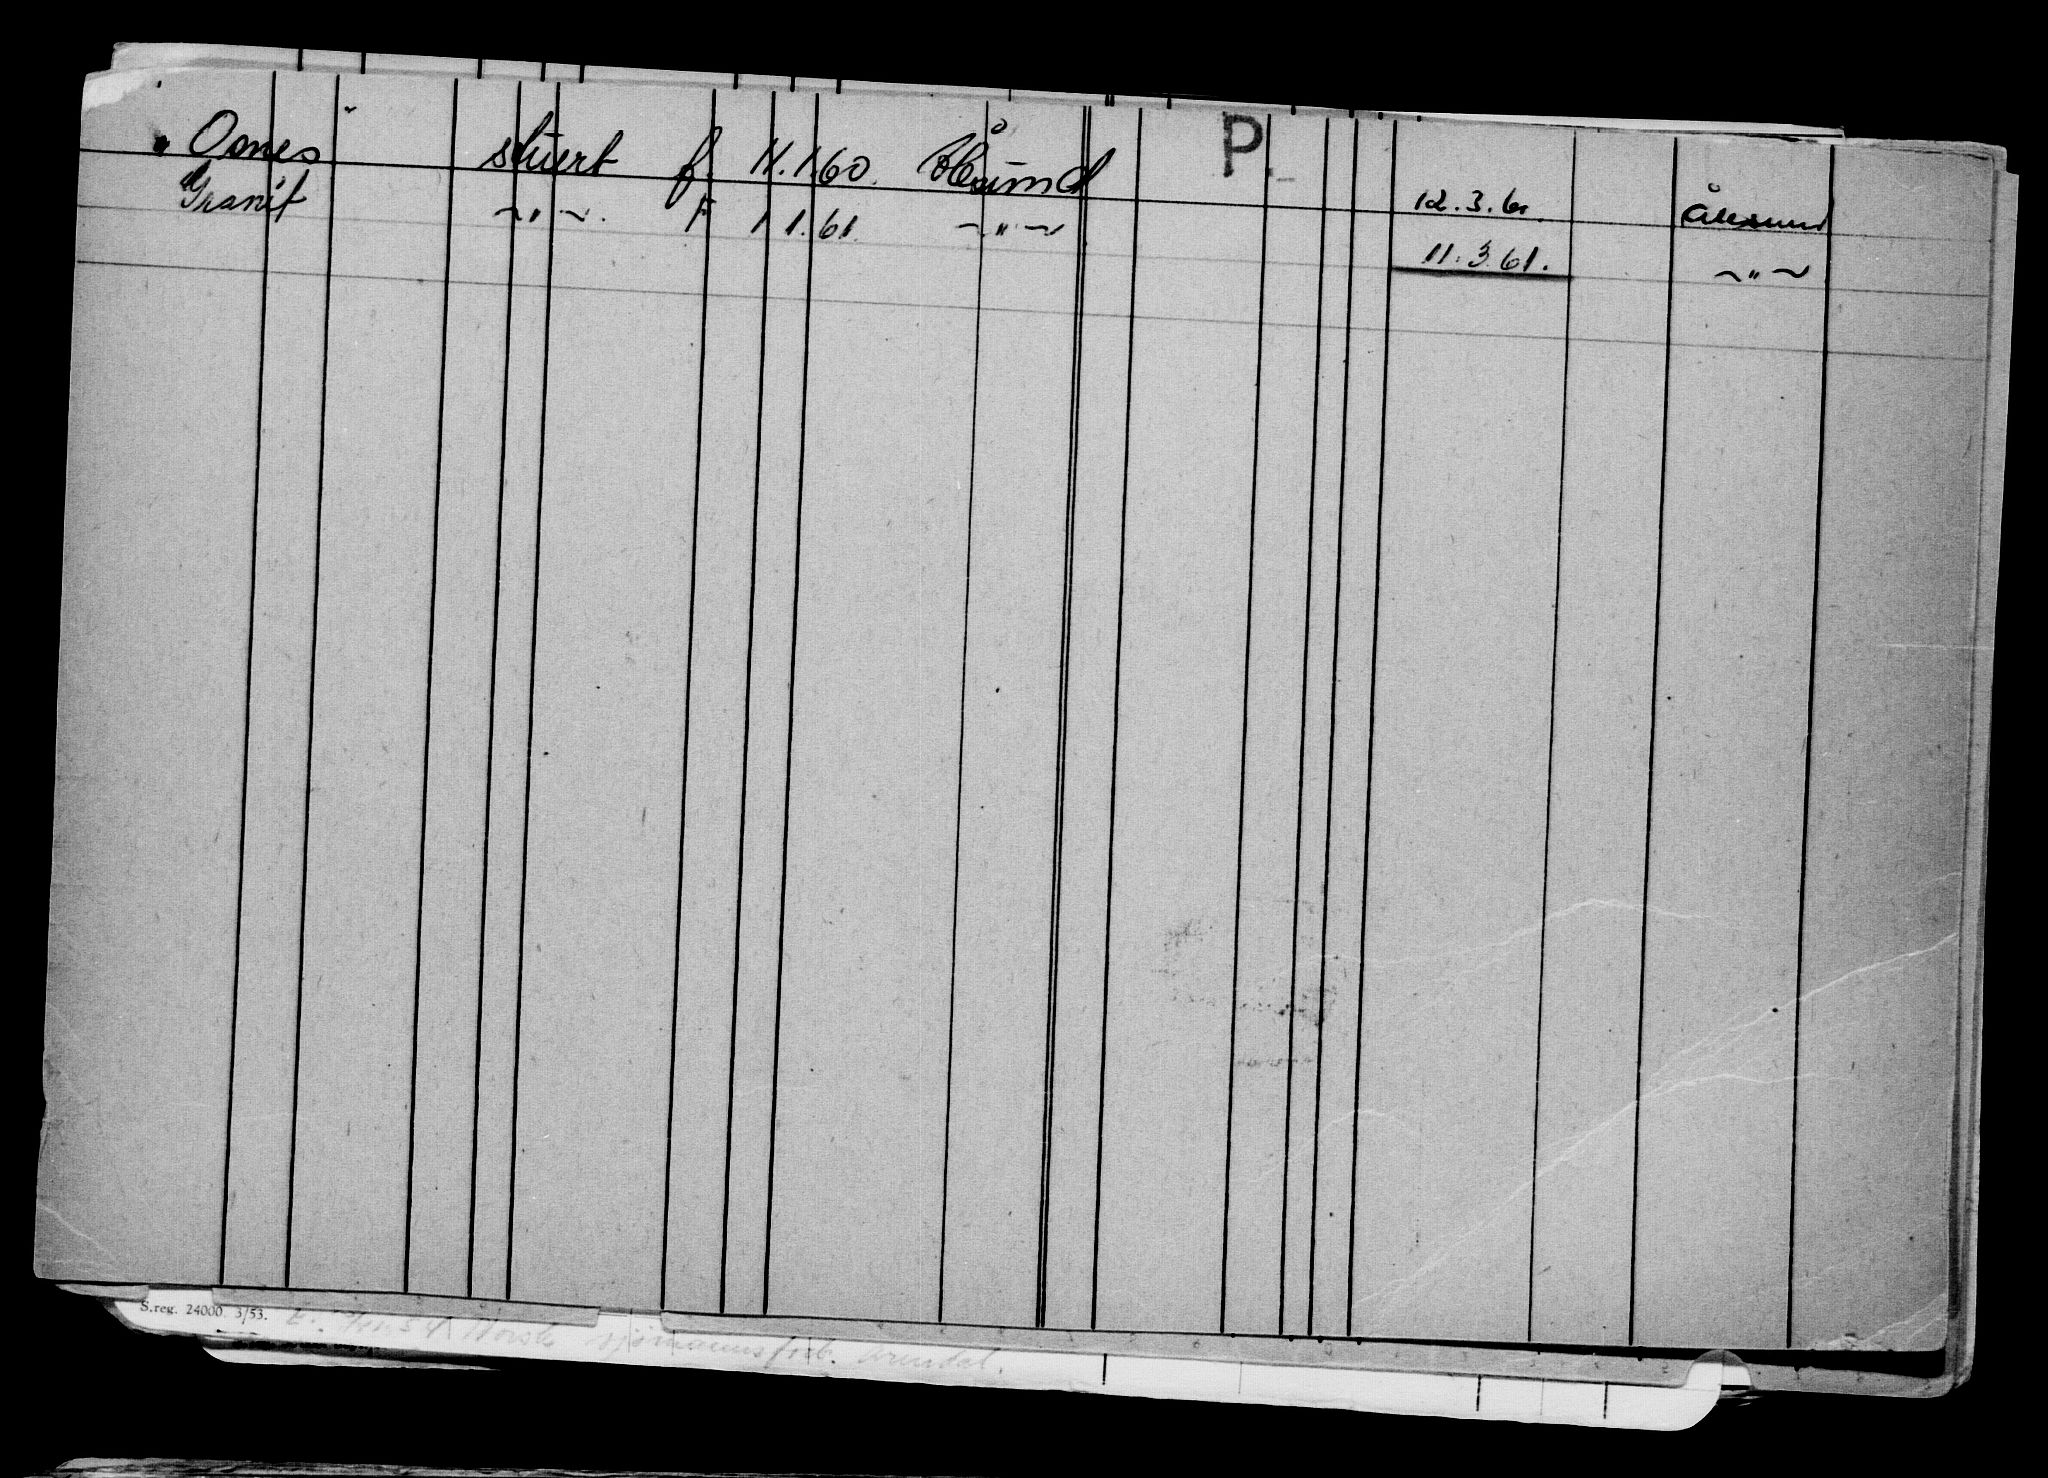 " Osnes stuert f. 11.1.60. Ålesund P
Granit ~"~. F 1 1.61. ~"~ 12.3.61. Ålesund
11.3.61. ~"~
S.reg. 24000. 3/53.
Norsk sjømannsforb. Arendal.